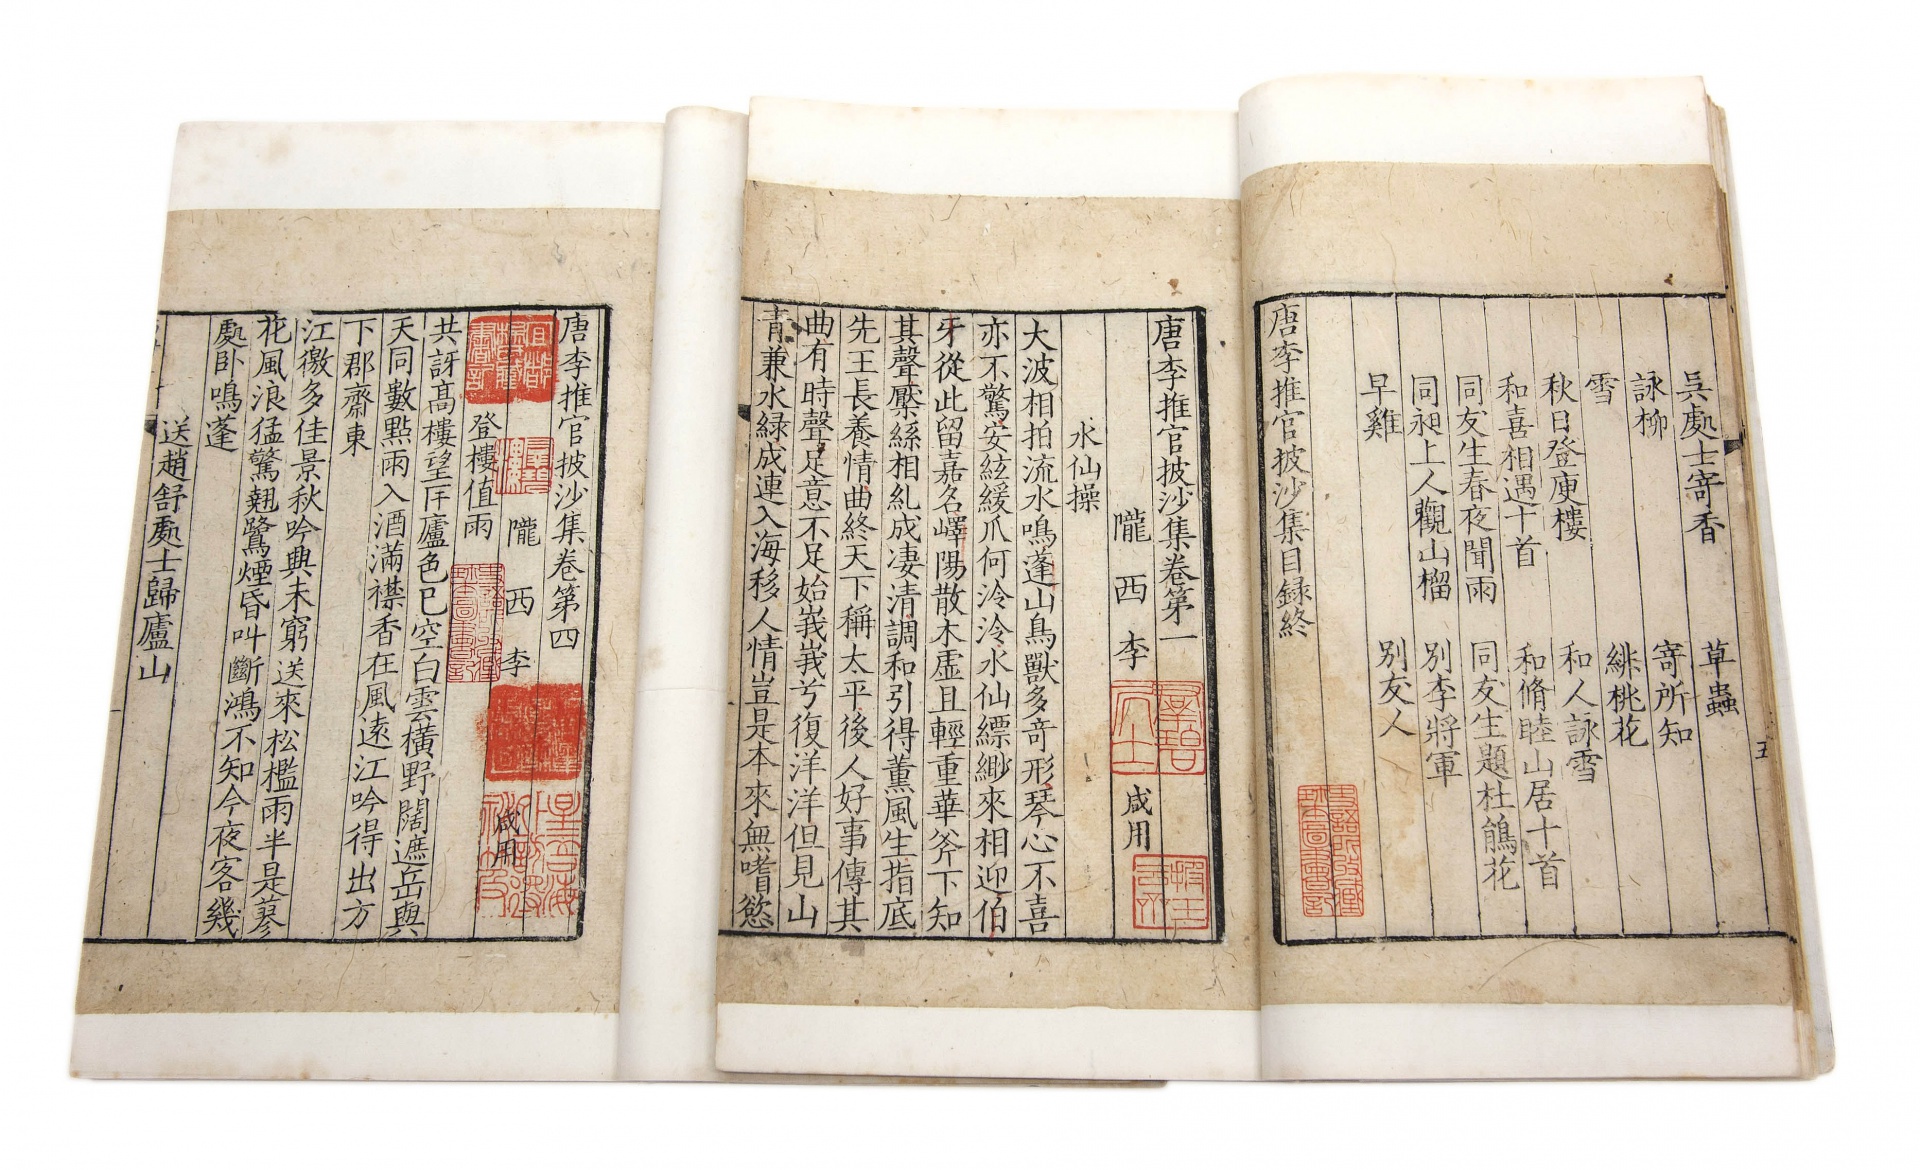 吳處士寄香 草蟲
詠柳 寄所知
雪 緋桃花
秋日登庾樓 和人詠雪
和喜相遇十首 和脩睦山居十首
同友生春夜聞雨 同友生題杜鵑花
同昶上人觀山榴 別李將軍
早雞 別友人
唐李推官披沙集目録終
五
唐李推官披沙集卷第一
隴西李 咸用
水仙操
大波相拍流水鳴蓬山鳥獸多奇形琴心不喜
亦不驚安絃緩爪何泠泠水仙縹緲來相迎伯
牙從此留嘉名嶧陽散木虛且輕重華斧下知
其聲檿絲相糺成凄清調和引得薰風生指底
先王長養情曲終天下稱太平後人好事傳其
曲有時聲足意不足始峩峩兮復洋洋但見山
青兼水緑成連入海移人情豈是本來無嗜慾
唐李推官披沙集卷第四
隴西李 咸用
登樓值雨
共訝高樓望㡯廬色已空白雲橫野闊遮岳與
天同數點雨入酒滿襟香在風遠江吟得出方
下郡齋東
江徼多佳景秋吟興未窮送來松檻雨半是蓼
花風浪猛驚翹鷺煙昏叫斷鴻不知今夜客幾
處臥鳴蓬
送趙舒處士歸廬山